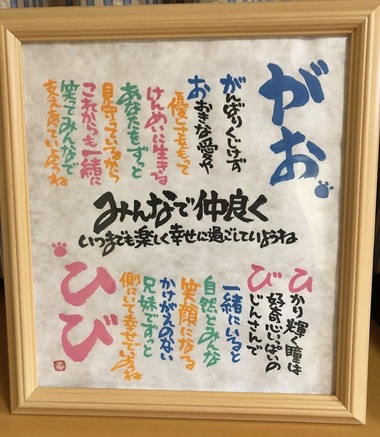 がお
がんばりくじけず
おおきな愛や
優しさをもって
けんめいに生きる
あなたをずっと
見守っているから
これからも一緒に
笑ってみんなで
支えあっていようね
みんなで仲良く
いつまでも楽しく幸せに過ごしていようね
ひかり輝く瞳は
好奇心いっぱいの
びじんさんで
一緒にいると
自然とみんな
笑顔になる
かけがえのない
兄妹でずっと
側にいて幸せでいようね
ひび